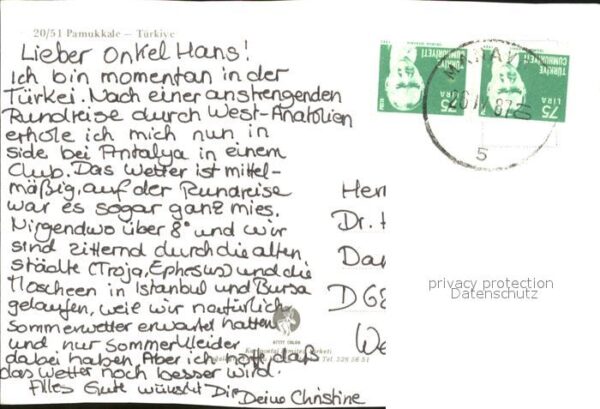 20/51 Pamukkale — Türkiye
Lieber Onkel Hans!
Ich bin momentan in der
Türkei. Nach einer anstrengenden
Rundreise durch West-Anatolien
erhole ich mich nun in
Side bei Antalya in einem
Club. Das Wetter ist mittel-
mäßig, auf der Rundreise
war es sogar ganz mies.
Nirgendwo über 8° und wir
sind zitternd durch die alten
Städte (Troja, Ephesus) und die
Moscheen in Istanbul und Bursa
gelaufen, weil wir natürlich
Sommerwetter erwartet hatten
und nur Sommerkleider
dabei haben. Aber ich hoffe daß
das Wetter noch besser wird.
Alles Gute wünscht Dir
Deine Christine
Dr.
TÜRKİYE
CUMHURİYETİ
75
LIRA
TÜRKİYE
CUMHURİYETİ
75
LIRA
87
5
privacy protection
Datenschutz
KEYKUBAT COLOR